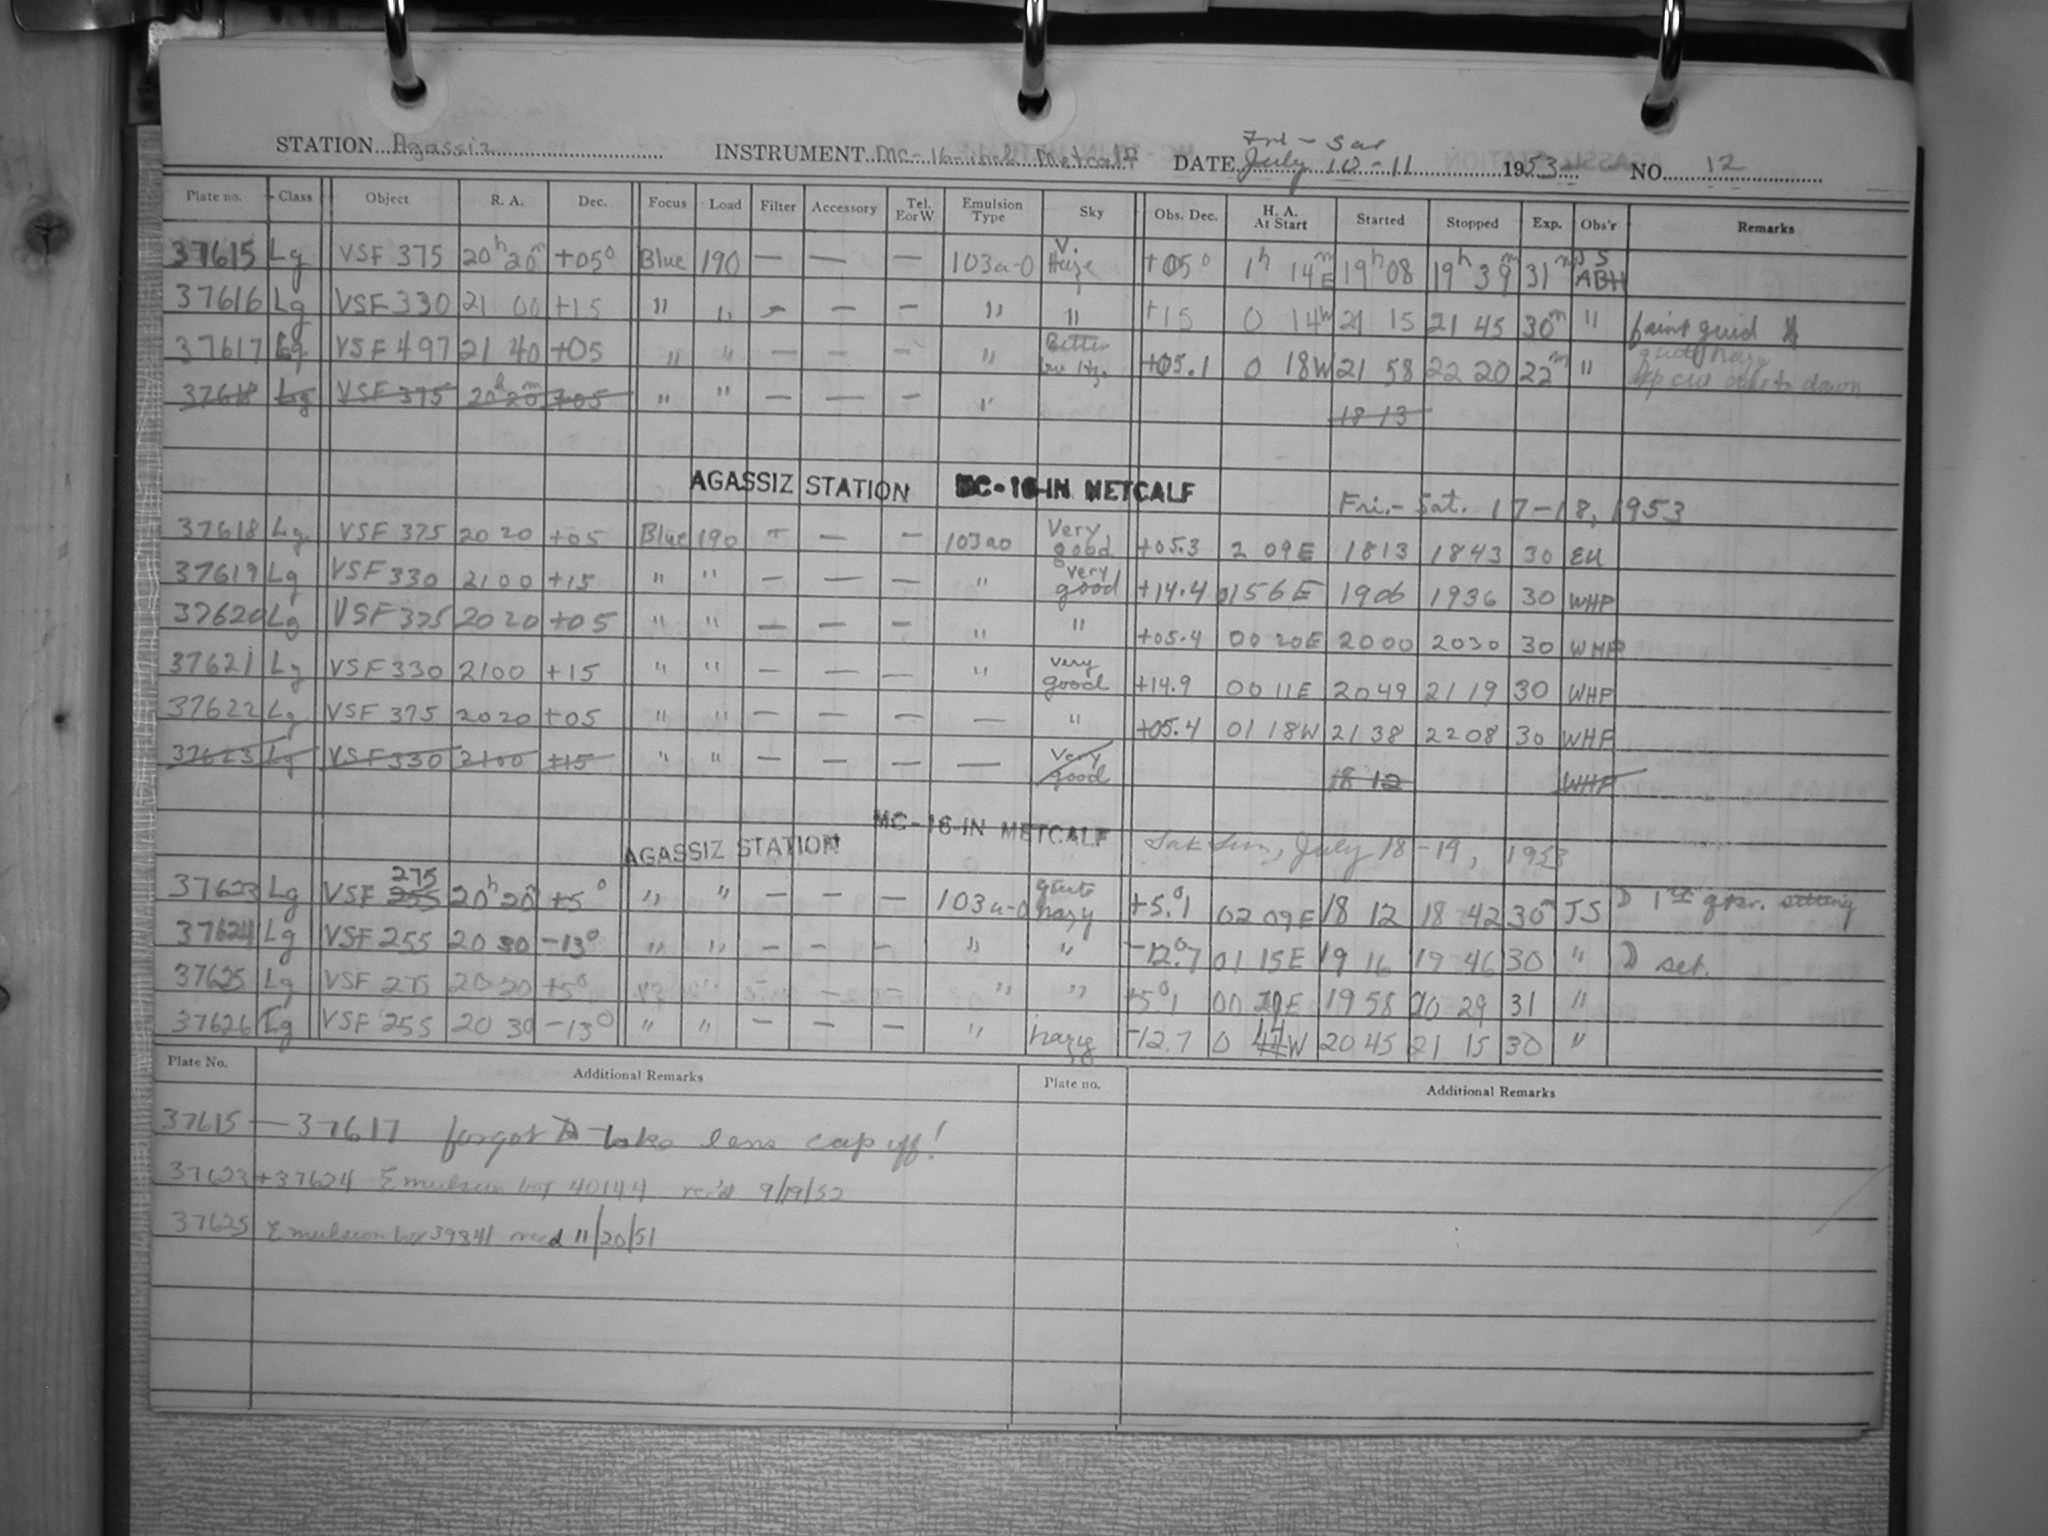 Fri - Sat
STATION Agassiz INSTRUMENT MC-16-inch Metcalf DATE July 10-11 1953 NO. 12
Plate no. Class Object R. A. Dec. Focus Load Filter Accessory Tel. E or W Emulsion Type Sky Obs. Dec. H. A. At Start Started Stopped Exp. Obs'r Remarks
37615 Lg VSF 375 20h 20m +05° Blue 190 — — — 103a-O V. Haze +05° 1h 14m E 19h 08 19h 39m 31m JS ABH
37616 Lg VSF 330 21 00 +15 " " — — — " " +15 0 14W 21 15 21 45 30m " faint guid
37617 Lg VSF 497 21 40 +05 " " — — — " Better +05.1 0 18W 21 58 22 20 22m " dawn
37618 Lg VSF 375 20h 20m +05 " " — — — " 18 13
AGASSIZ STATION MC-16-IN METCALF Fri.- Sat. 17-18, 1953
37618 Lg. VSF 375 20 20 +05 Blue 190 — — — 103a0 Very good +05.3 2 09E 1813 1843 30 EU
37619 Lg VSF 330 2100 +15 " " — — — " very good +14.4 0156E 1906 1936 30 WHP
37620 Lg VSF 375 20 20 +05 " " — — — " " +05.4 00 20E 2000 2030 30 WHP
37621 Lg VSF 330 2100 +15 " " — — — " very good +14.9 00 11E 2049 2119 30 WHP
37622 Lg VSF 375 2020 +05 " " — — — — " +05.4 01 18W 2138 2208 30 WHP
37623 Lg VSF 330 2100 +15 " " — — — — Very good 18 12 WHP
AGASSIZ STATION MC-16-IN METCALF Sat Sun, July 18-19, 1953
37623 Lg VSF 255 275 20h 20m +5° " " — — — 103a-O quite hazy +5.°1 02 09E 18 12 18 42 30m JS ☽ 1st qtr. setting
37624 Lg VSF 255 20 30 -13° " " — — — " " -12.°7 01 15E 19 16 19 46 30 " ☽ set.
37625 Lg VSF 275 20 20 +5° " " — — — " " +5.°1 00 E 19 58 20 29 31 "
37626 Lg VSF 255 20 30 -13° " " — — — " hazy -12.7 0 W 20 45 21 15 30 "
Plate No. Additional Remarks Plate no. Additional Remarks
37615 — 37617 forgot to take lens cap off!
37623 + 37624 Emulsion box 40144 rec'd 9/19/52
37625 Emulsion box 39841 recd 11/20/51